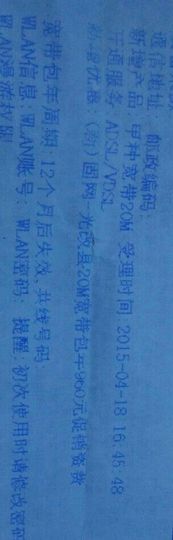 通信地址: 邮政编码
新增产品: 甲种宽带20M 受理时间 2015-04-18 16:45:48
开通服务 ADSL/VDSL
新增优惠 (衡)固网-光改县20M宽带包年960元促销资费
宽带包年周期:12个月后失效,共线号码:
WLAN信息:WLAN账号: WLAN密码: 提醒:初次使用时请修改密码
WLAN漫游权限: